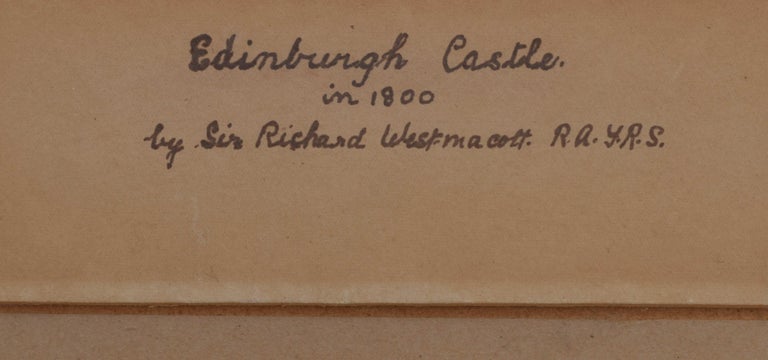 Edinburgh Castle.
in 1800
by Sir Richard Westmacott. R.A. F.R.S.